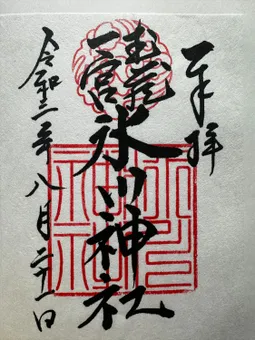 奉拝
武蔵
一宮
氷川神社
令和三年八月二十一日